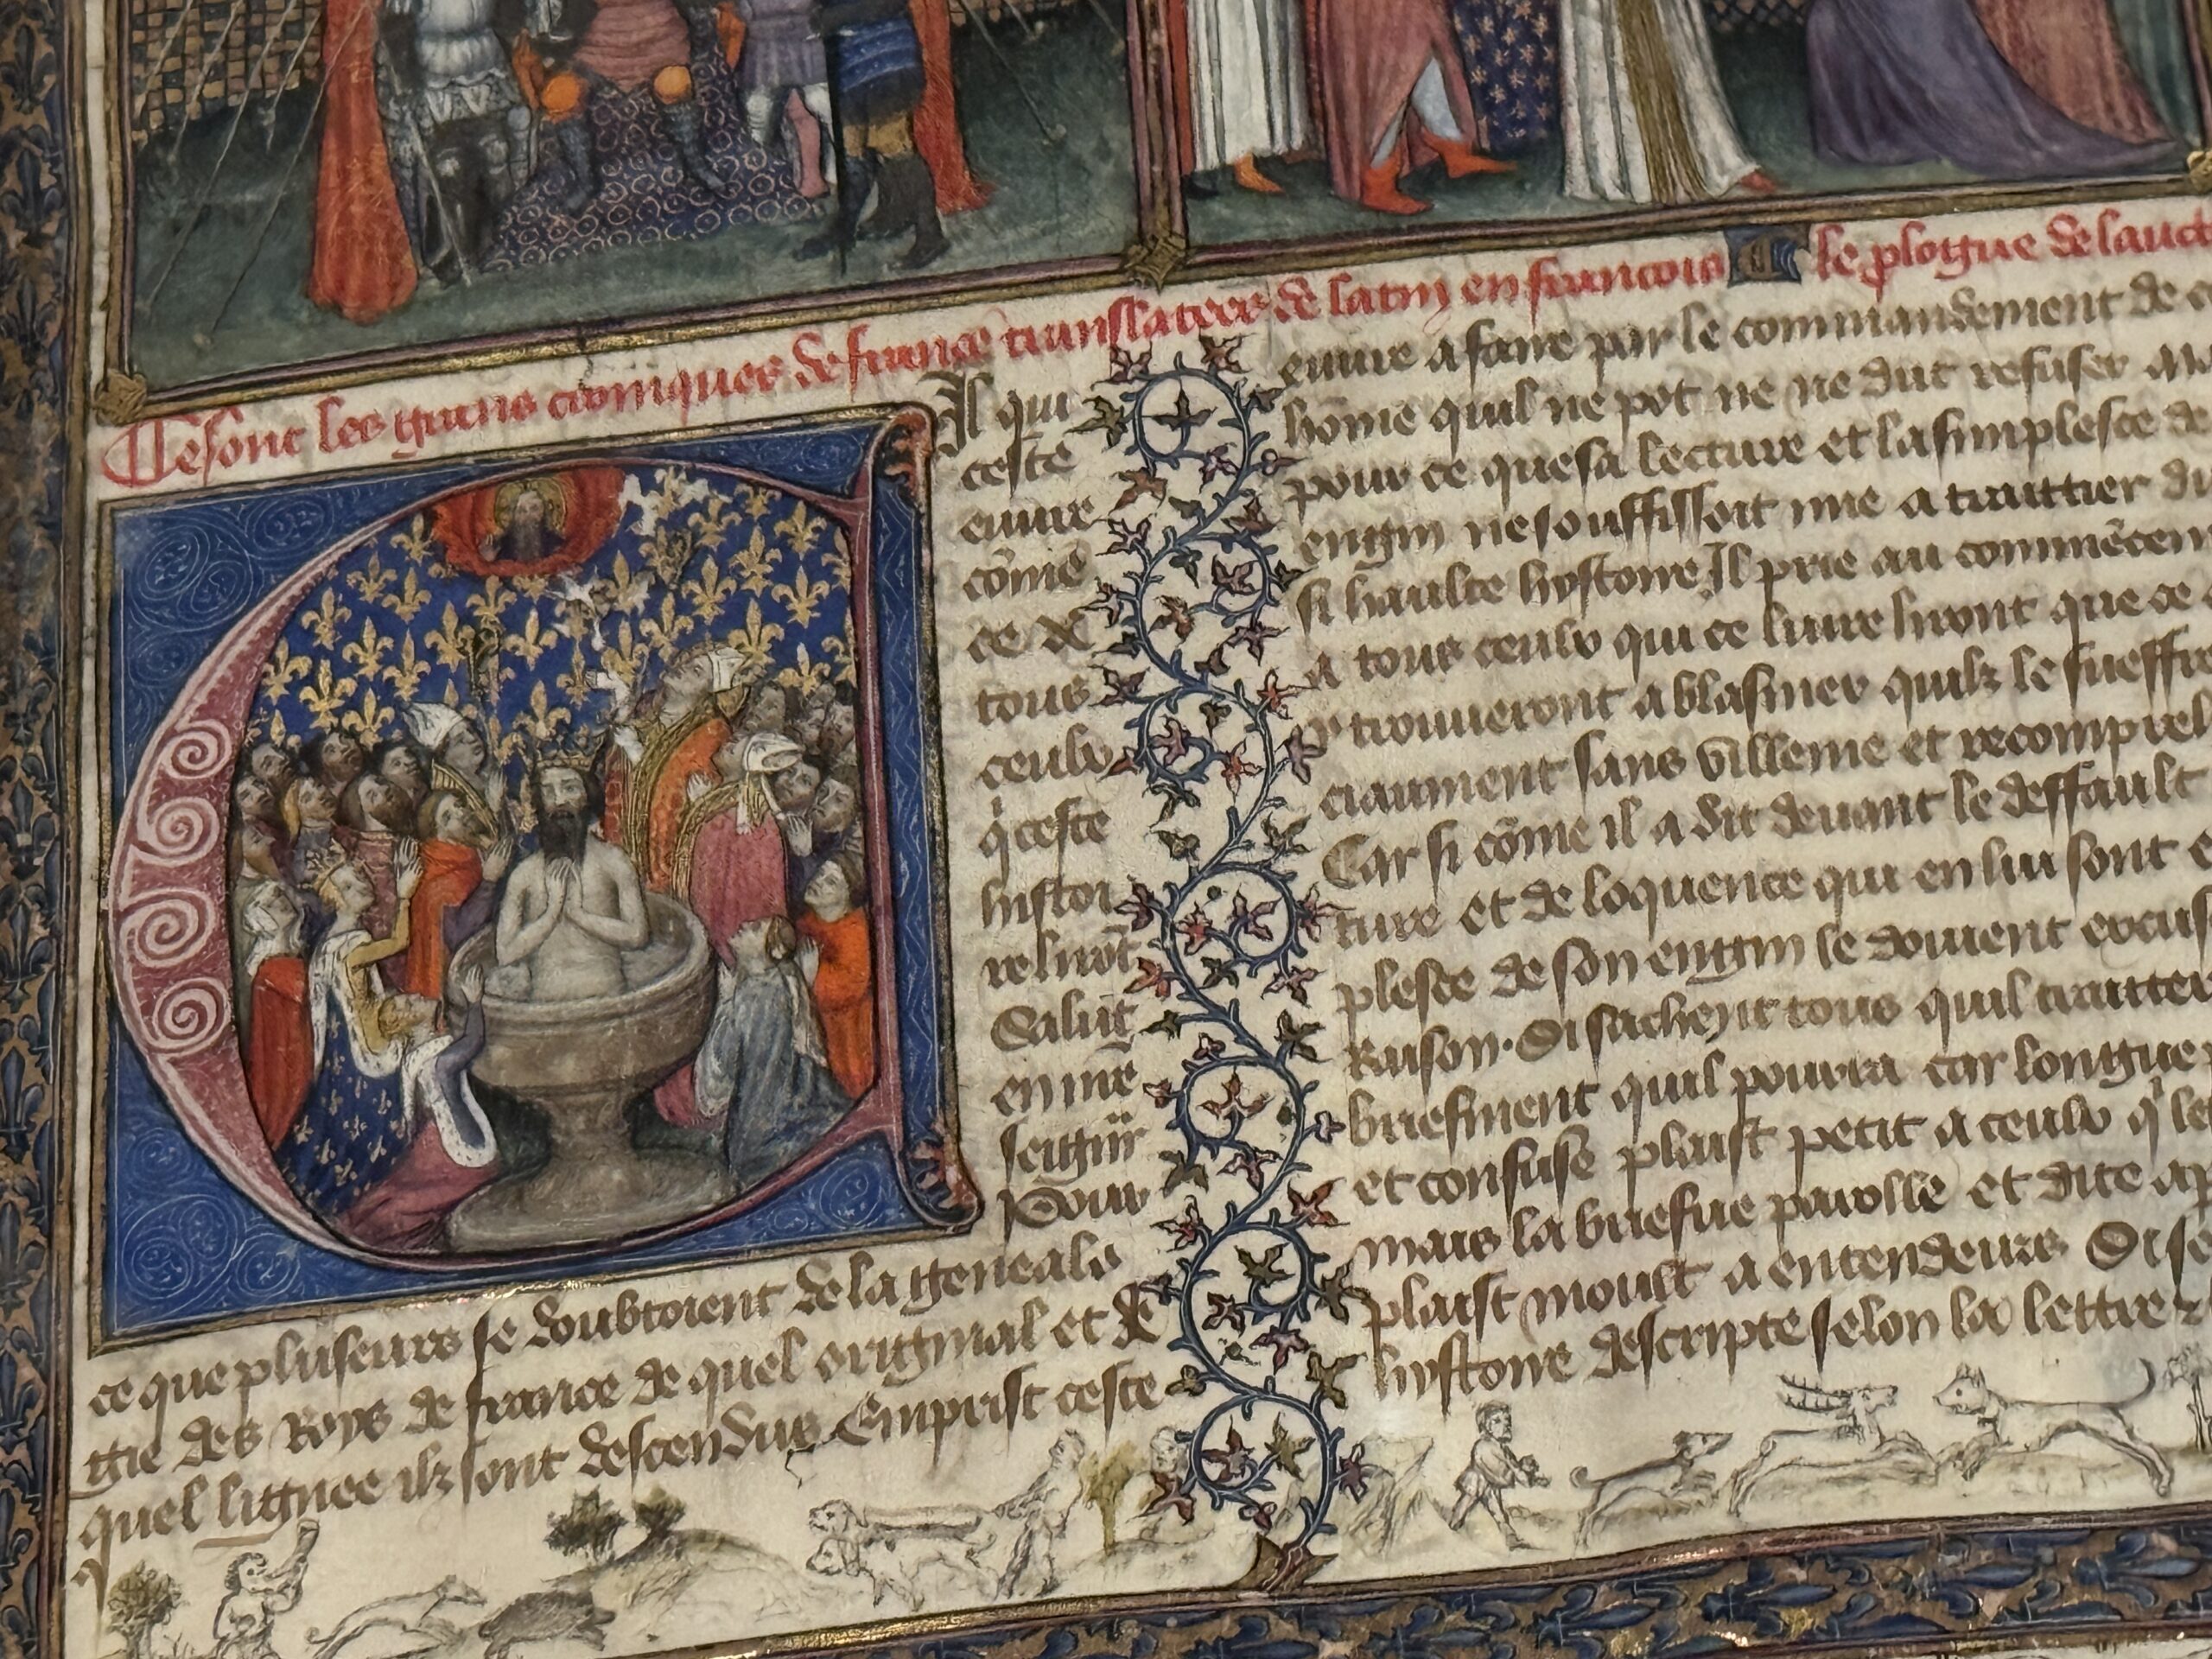 Ce sont les grans croniques de france translatees de latin en francois le plogue de lauct
Il qui
ceste
euure
cōme
ce A
tous
ceulx
q̄ ceste
histoi
re liront
Salut
en nr̄e
seignr̄
Pour
ce que pluseurs se doubtoient de la genealo
gie des Roys de france de quel original et de
quel lignee ilz sont descendus Emprist ceste
euure a faire par le commandement de
hōme quil ne pot ne ne dut refuser
pour ce que sa lecture et la simplesce de
engin ne souffissoit mie a traittier
si haulte hystoire Il prie au commēcem
a tous ceulx qui ce liure liront que ce
y trouueront a blasmer quilz le sueffre
ciaument sans villenie et
Car si cōme il a dit deuant le deffault
ture et de loquence qui en lui sont
plesce de son engin le doiuent excus
Raison. Si sachent tous quil traitter
briefment quil pourra car longue
et confuse plaist petit a ceulx q̄ le
mais la briefue parolle et dite ap
plaist moult a entendeurs Si se
hystoire descripte selon la lettre